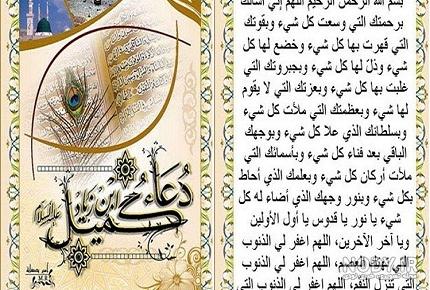 بسم الله الرحمن الرحيم اللهم إني أسألك
برحمتك التي وسعت كل شيء وبقوتك
التي قهرت بها كل شيء وخضع لها كل
شيء وذل لها كل شيء وبجبروتك التي
غلبت بها كل شيء وبعزتك التي لا يقوم
لها شيء وبعظمتك التي ملأت كل شيء
وبسلطانك الذي علا كل شيء وبوجهك
الباقي بعد فناء كل شيء وبأسمائك التي
ملأت أركان كل شيء وبعلمك الذي أحاط
بكل شيء وبنور وجهك الذي أضاء له كل
شيء يا نور يا قدوس يا أول الأولين
ويا آخر الآخرين، اللهم اغفر لي الذنوب
التي تهتك العصم، اللهم اغفر لي الذنوب
التي تنزل النقم، اللهم اغفر لي الذنوب
دعاء
كميل ابن زياد
عليه السلام